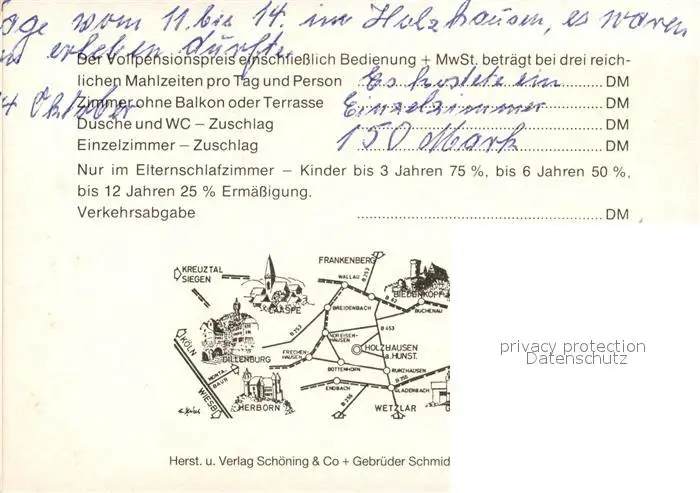 age vom 11. bis 14. im Holzhausen, es waren
erleben durften
Der Vollpensionspreis einschließlich Bedienung + MwSt. beträgt bei drei reich-
lichen Mahlzeiten pro Tag und Person Es kostete ein DM
Zimmer ohne Balkon oder Terrasse Einzelzimmer DM
14 Oktober
Dusche und WC – Zuschlag DM
Einzelzimmer – Zuschlag 150 Mark DM
Nur im Elternschlafzimmer – Kinder bis 3 Jahren 75 %, bis 6 Jahren 50 %,
bis 12 Jahren 25 % Ermäßigung.
Verkehrsabgabe DM
KREUZTAL
SIEGEN
FRANKENBERG
WALLAU
B 253
LAASPE
BIEDENKOPF
B 62
BUCHENAU
BREIDENBACH
B 253
B 453
KÖLN
DILLENBURG
FRECHEN-
HAUSEN
HOLZHAUSEN
a. HÜNST.
BOTTENHORN
RUNZHAUSEN
MONTA-
BAUR
WIESB
ENDBACH
B 255
GLADENBACH
HERBORN
B 255
WETZLAR
G
privacy protection
Datenschutz
Herst. u. Verlag Schöning & Co + Gebrüder Schmid